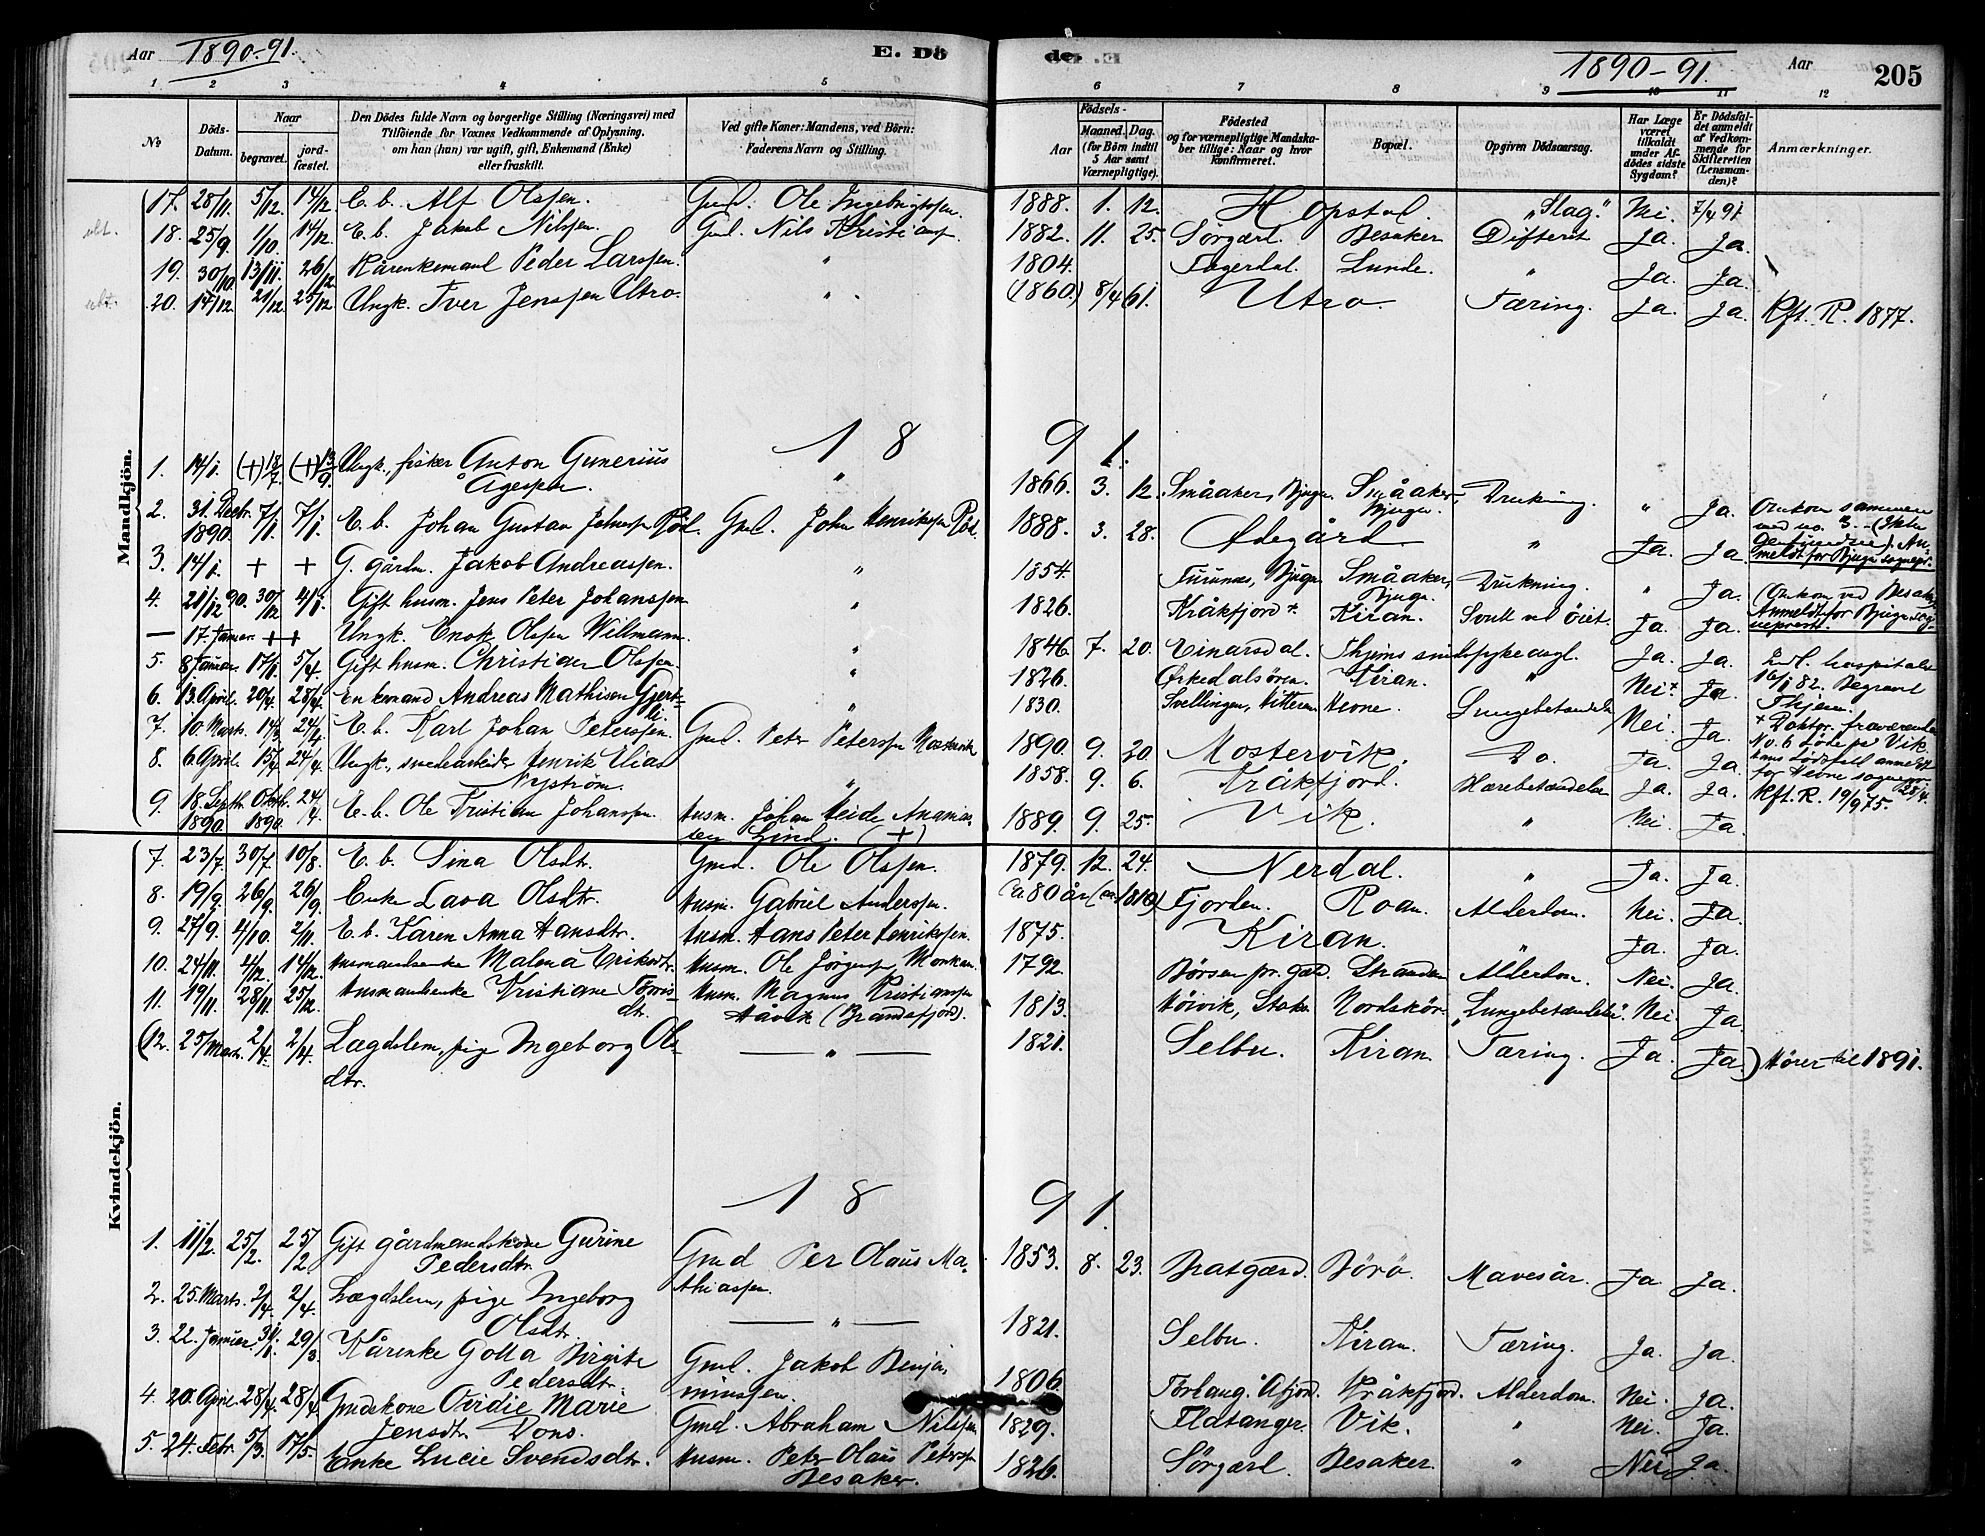 Aar 1890-91.
E. Dö
de.
1890-91. Aar
205
1 2 3 4 5
6 7 8 9 10 11 12
No
Döds-Datum.
Naar
begravet.
jord-fæstet.
Den Dödes fulde Navn og borgerlige Stilling (Næringsvei) med
Tilföiende for Voxnes Vedkommende af Oplysning,
om han (hun) var ugift, gift, Enkemand (Enke)
eller fraskilt.
Ved gifte Koner: Mandens, ved Börn:
Faderens Navn og Stilling.
Födsels-
Aar
Maaned. Dag.
(for Börn indtil
5 Aar samt
Værnepligtige).
Födested
og for værnepligtige Mandska-
ber tillige: Naar og hvor
konfirmeret.
Bopæl.
Opgiven Dödsaarsag.
Har Læge
været
tilkaldt
under Af-
dödes sidste
Sygdom?
Er Dödsfal-
det anmeldt
af Vedkom-
mende for
Skifteretten
(Lensman-
den)?
Anmærkninger.
Mandkjön.
17. 28/11. 5/12. 14/12. E. b. Alf Olssen. Gmd. Ole Ingebrigtssen. 1888. 1. 12. Hopstad. "Slag." Nei. 7/4 91.
18. 25/9. 1/10. 14/12. E. b. Jakob Nilssen. Gmd. Nils Kristianss. 1882. 11. 25. Sørgærd. Besaker Difterit Ja. Ja.
19. 30/10. 13/11. 26/12. Kårenkemand Peder Larssen. " 1804. Fagerdal. Lunde. " Ja. Ja.
20. 14/12. 21/12. 25/12. Ungk. Iver Jenssen Utro. " (1860.) 8/4 61. Utro. Tæring. Ja. Ja. Kft. R. 1877.
1891.
1. 14/1. (+) 18/7. (+) 13/9. Ungk., fisker Anton Gunerius
Ågessen. " 1866. 3. 12. Småaker, Bjugn. Småaker, Bjugn. Drukning. " Ja. Omkom sammen
med no. 3.
2. 31. Decbr. 1890. 7/1. 7/1. E. b. Johan Gustav Johnssen Gmd. John Henrikssen 1888. 3. 28. Ødegård. " Ja. Ja.
3. 14/1. + + G. gårdm. Jakob Andreassen. " 1854. Furunes, Bjugn. Småaker, Bjugn. Drukning. " Ja. (Omkom ved Besaker
Anmeldt for Bjugn sog-
neprest.
4. 21/12 90. 30/12 4/1. Gift husm. Jens Peter Johanssen " 1826. Kråkfjord. Kiran. Ja. Ja.
— 17. Januar. + + Ungk. Enok Olssen Willmann. " 1846. 7. 20. Einarsdal. Thjems Ja. Ja.
5. 8 Januar. 17/1. 5/4. Gift husm. Christian Olssen. " 1826. Ørkedalsören. Kiran. " Nei+ Ja
6. 13. April. 20/4. 28/4. Enkemand Andreas Mathisen Gjert- " 1830. Svellingen, Hitteren Lungebetændelse Nei. Ja.
7. 10. Marts. 14/3 24/4. E. b. Karl Johan Peterssen. Gmd. Peter Peterssen Mostervik 1890. 9. 20. Mostervik. Do. Ja. Ja.
8. 6 April. 15/4. 24/4. Ungk., Henrik Elias
Nyström. " 1858. 9. 6. Kråkfjord. Ja. Ja. Kft. R. 19/9 75.
9. 18. Septbr. 1890. Oktbr. 1890. 24/4. E. b. Ole Kristian Johanssen. Husm. Johan Heide Ananias-
sen Lind. (+) 1889. 9. 25. Vik. " Nei. Ja.
Kvindekjön.
7. 23/7. 30/7. 10/8. E. b. Sina Olsdtr. Gmd. Ole Olssen. 1879. 12. 24. Nerdal. " Ja. Ja.
8. 19/9. 26/9. 26/9. Enke Lava Olsdtr. Husm. Gabriel Anderssen. Ca 80 år (ca 1810) Fjorden. Roan. Alderdom. Nei. Ja.
9. 27/9. 4/10. 2/11. E. b. Karen Anna Hansdtr. Husm. Hans Peter Henrikssen. 1875. Kiran. " Ja. Ja.
10. 24/11. 4/12. 14/12. Husmandsenke Malena Eriksdtr. Husm. Ole Jørgenss. Monkan. 1792. Børsen pr. gæld. Stranden Alderdom. Nei. Ja.
11. 19/11. 28/11. 25/12. Husmandsenke Kristiane Tørris-
dtr. Husm. Magnus Kristianssen
Håvik (Brandsfjord). 1813. Høivik, Stoks. Nordskör. "Lungebetændelse". Nei. Ja.
(12. 25/Marts. 2/4. 2/4. Lægdslem, pige Ingeborg Ols-
dtr. — " — 1821. Selbu. Kiran. Tæring. Ja. Ja.) Hører til 1891.
1891.
1. 11/2. 25/2. 25/2. Gift gårdmandskone Gurine
Pedersdtr. Gmd Per Olaus Ma-
thiassen. 1853. 8. 23. Bratgærd. Börö. Mavesår. Ja. Ja.
2. 25. Marts. 2/4. 2/4. Lægdslem, pige Ingeborg
Olsdtr. — " — 1821. Selbu. Kiran. Tæring. Ja. Ja.
3. 22. Januar. 31/1. 29/3. Kårenke Golla Birgite
Pedersdtr. Gmd. Jakob Benja-
minssen. 1806. Åfjord. Kråkfjord. Alderdom. Nei. Ja.
4. 20. April. 28/4. 28/4. Gmdskone Ovidie Marie
Jensdtr. Dons. Gmd. Abraham Nilssen 1829. Flatanger. Vik. " Nei. Ja.
5. 24. Febr. 5/3. 17/5. Enke Lucie Svendsdtr. Husm. Peter Olaus Peterssen
Besaker. 1826. Sørgærd. Besaker. " Nei Ja.